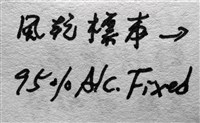 風乾標本→
95% Alc. Fixed